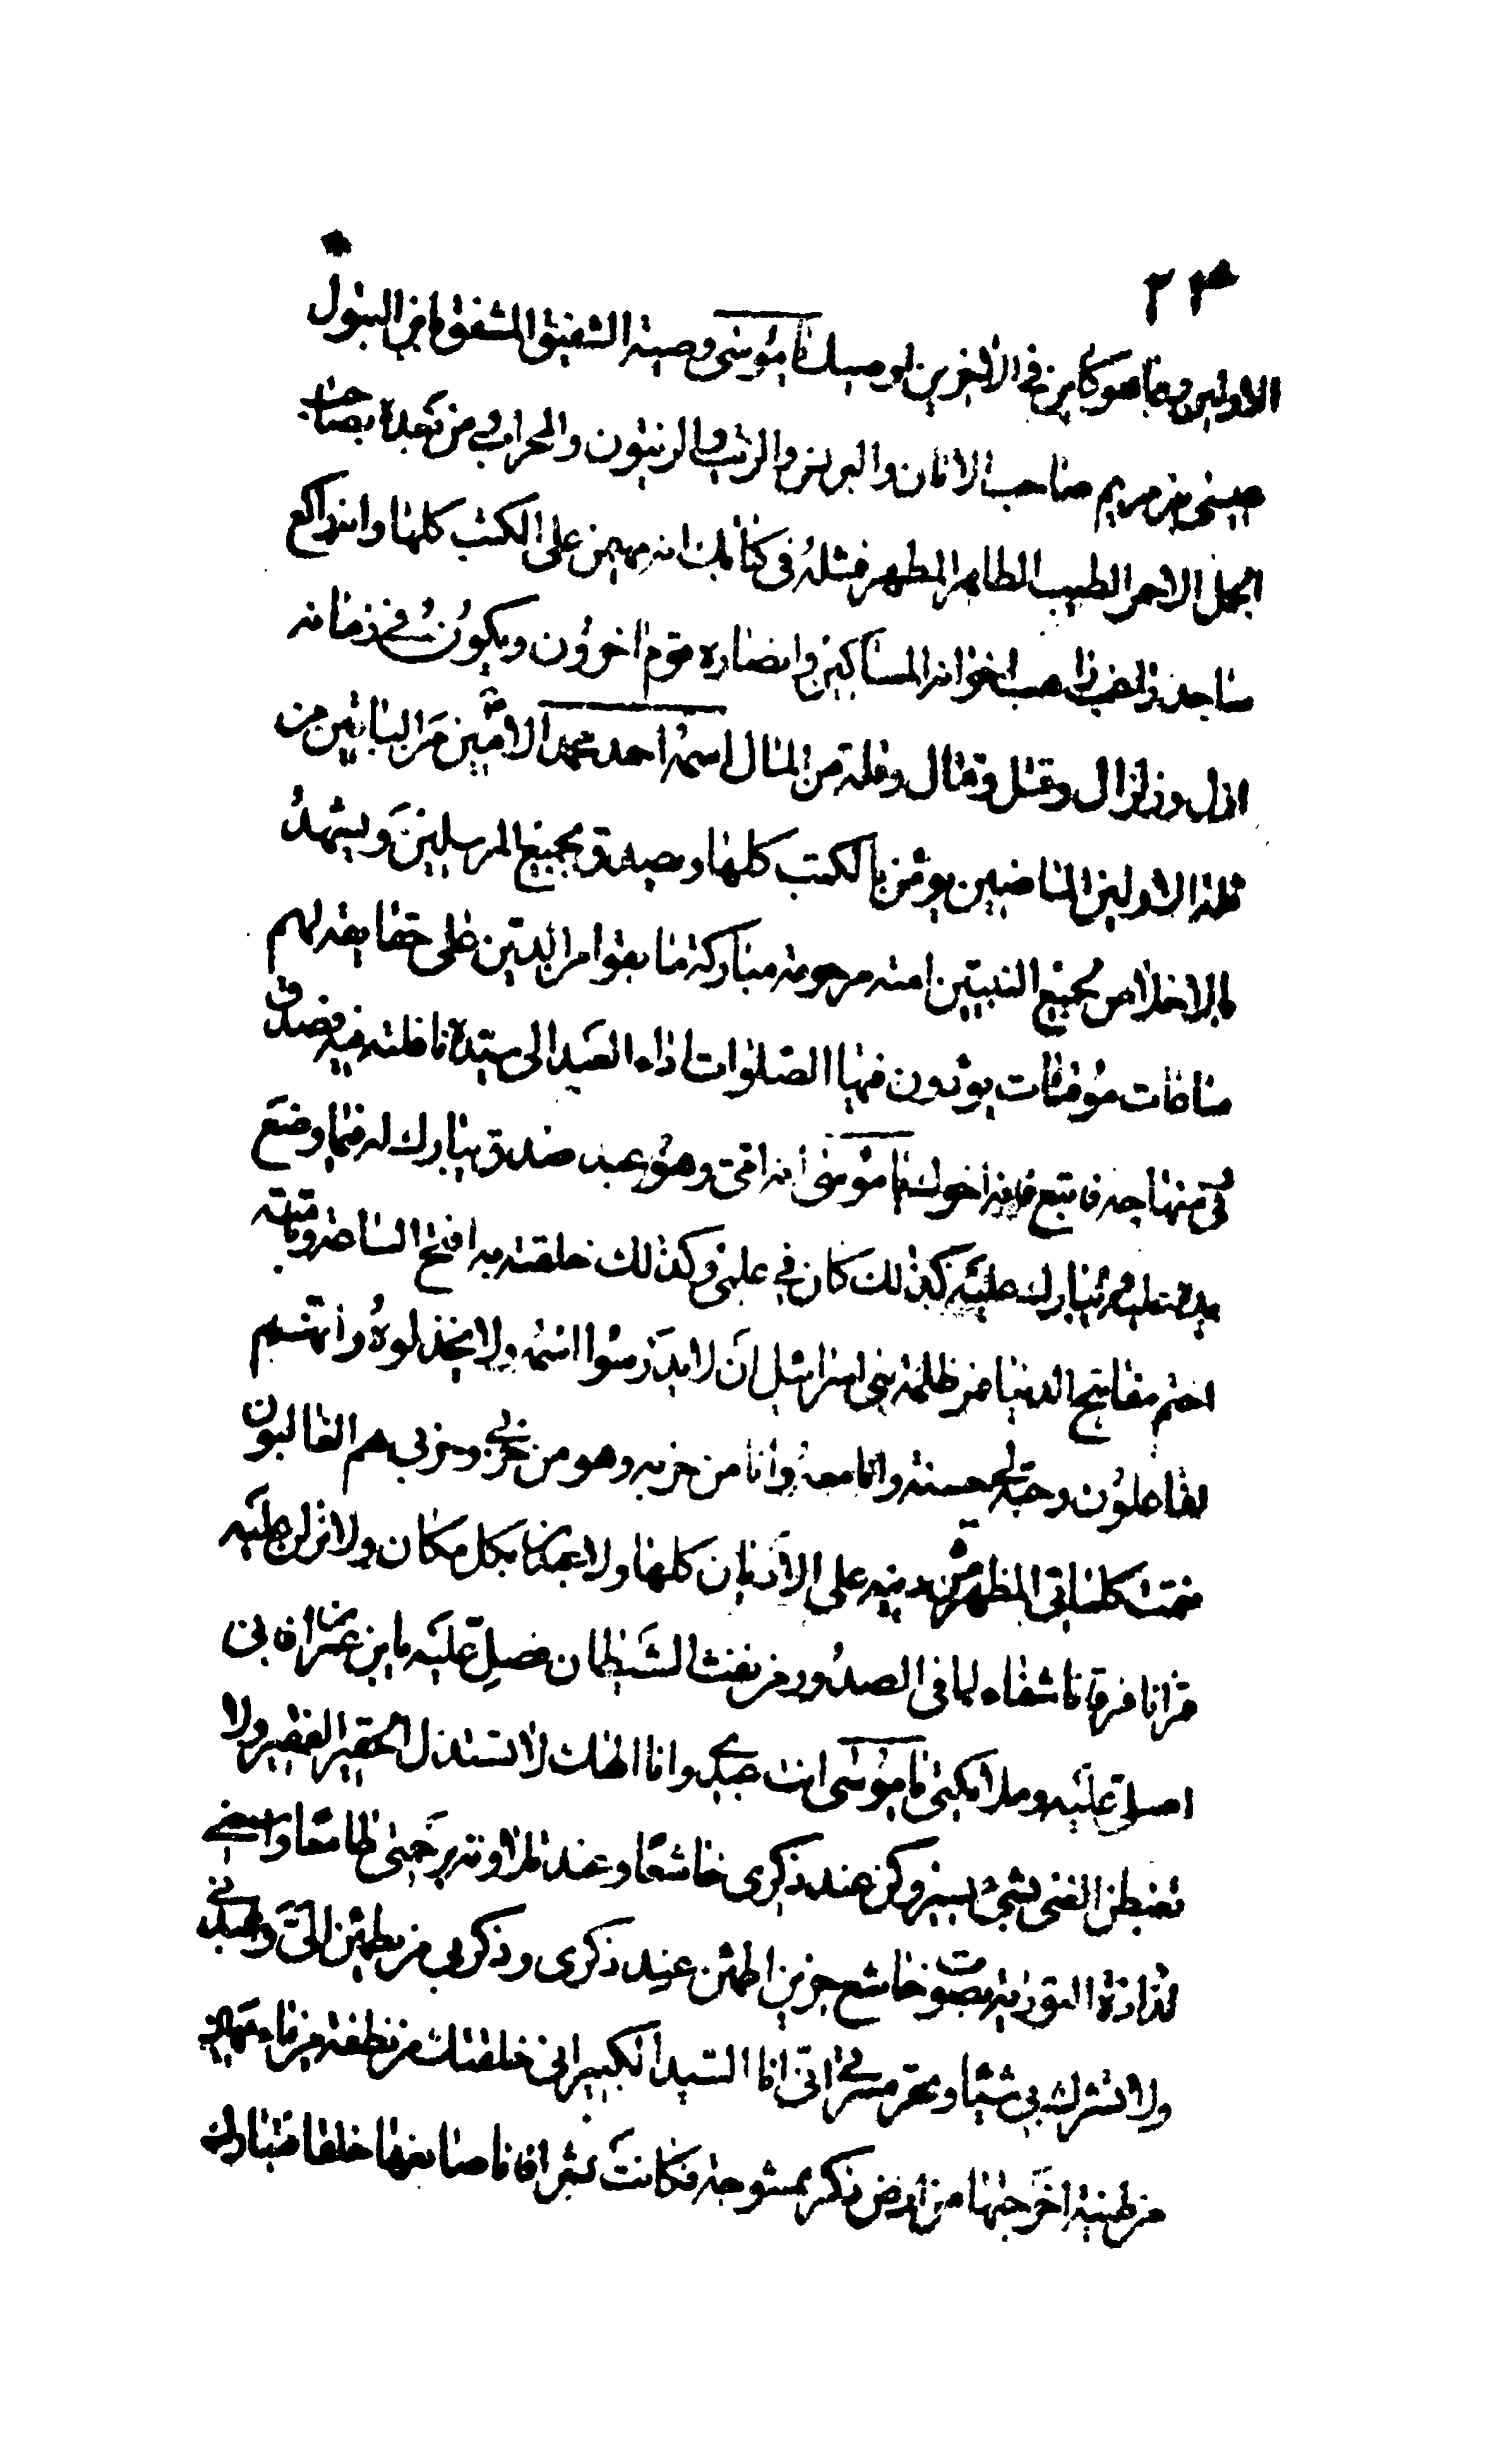 ٢٣
الاولين وبما هو كاين في الاخرين اوصيك يا موسى وصية الشفيق المشفق بابن البتول
عيسى بن مريم صاحب الاتان والبرنس والزيت والزيتون والمحراب ومن بعده بصاحب
الجمل الاحمر الطيب الطاهر المطهر فمثله في كتابك انه مهيمن على الكتب كلها وانه راكع
ساجد راغب راهب اخوانه المساكين وانصاره قوم اخرون ويكون في زمانه
ازل وزلزال وقتل وقتال وقلة من المال اسمه احمد محمد الامين من الباقين من
ثلة الاولين الماضين يؤمن بالكتب كلها ويصدق بجميع المرسلين ويشهد
بالاخلاص لجميع النبيين امته مرحومة مباركة ما بقوا من الدين على حقايقه لهم
ساعات موقتات يؤدون فيها الصلوات اداء العبد الى سيده نافلته فبه فصدق
ومنهاجه فاتبع فانه اخوك يا موسى انه امي وهو عبد صدق يبارك له فيما وضع
يده عليه ويبارك عليه كذلك كان في علمي وكذلك خلقته به افتح الساعة وبامته
اختم مفاتيح الدنيا فمر ظلمة بني اسرائيل ان لا يدرسوا اسمه ولا يخذلوه وانهم
لفاعلون وحبه لي حسنة وانا معه وانا من حزبه وهو من حزبي وحزبي هم الغالبون
فتمت كلماتي لاظهرن دينه على الاديان كلها ولاعبدن بكل مكان ولانزلن عليه
قرانا فرقانا شفاء لما في الصدور من نفث الشيطان فصل عليه يابن عمران فاني
اصلي عليه وملائكتي يا موسى انت عبدي وانا الهك لا تستذل الحقير الفقير ولا
تغبطن الغني بشيء يسير وكن عند ذكري خاشعا وعند تلاوته برحمتي طامعا واسمعني
لذاذة التورية بصوت خاشع حزين اطمئن عند ذكري وذكر بي من يطمئن الي واعبدني
ولا تشرك بي شيئا وتحر مسرتي اني انا السيد الكبير اني خلقتك من نطفة من ماء مهين
من طينة اخرجتها من ارض ذكر ممشوجة فكانت بشرا فانا صانعها خلقا فتبارك